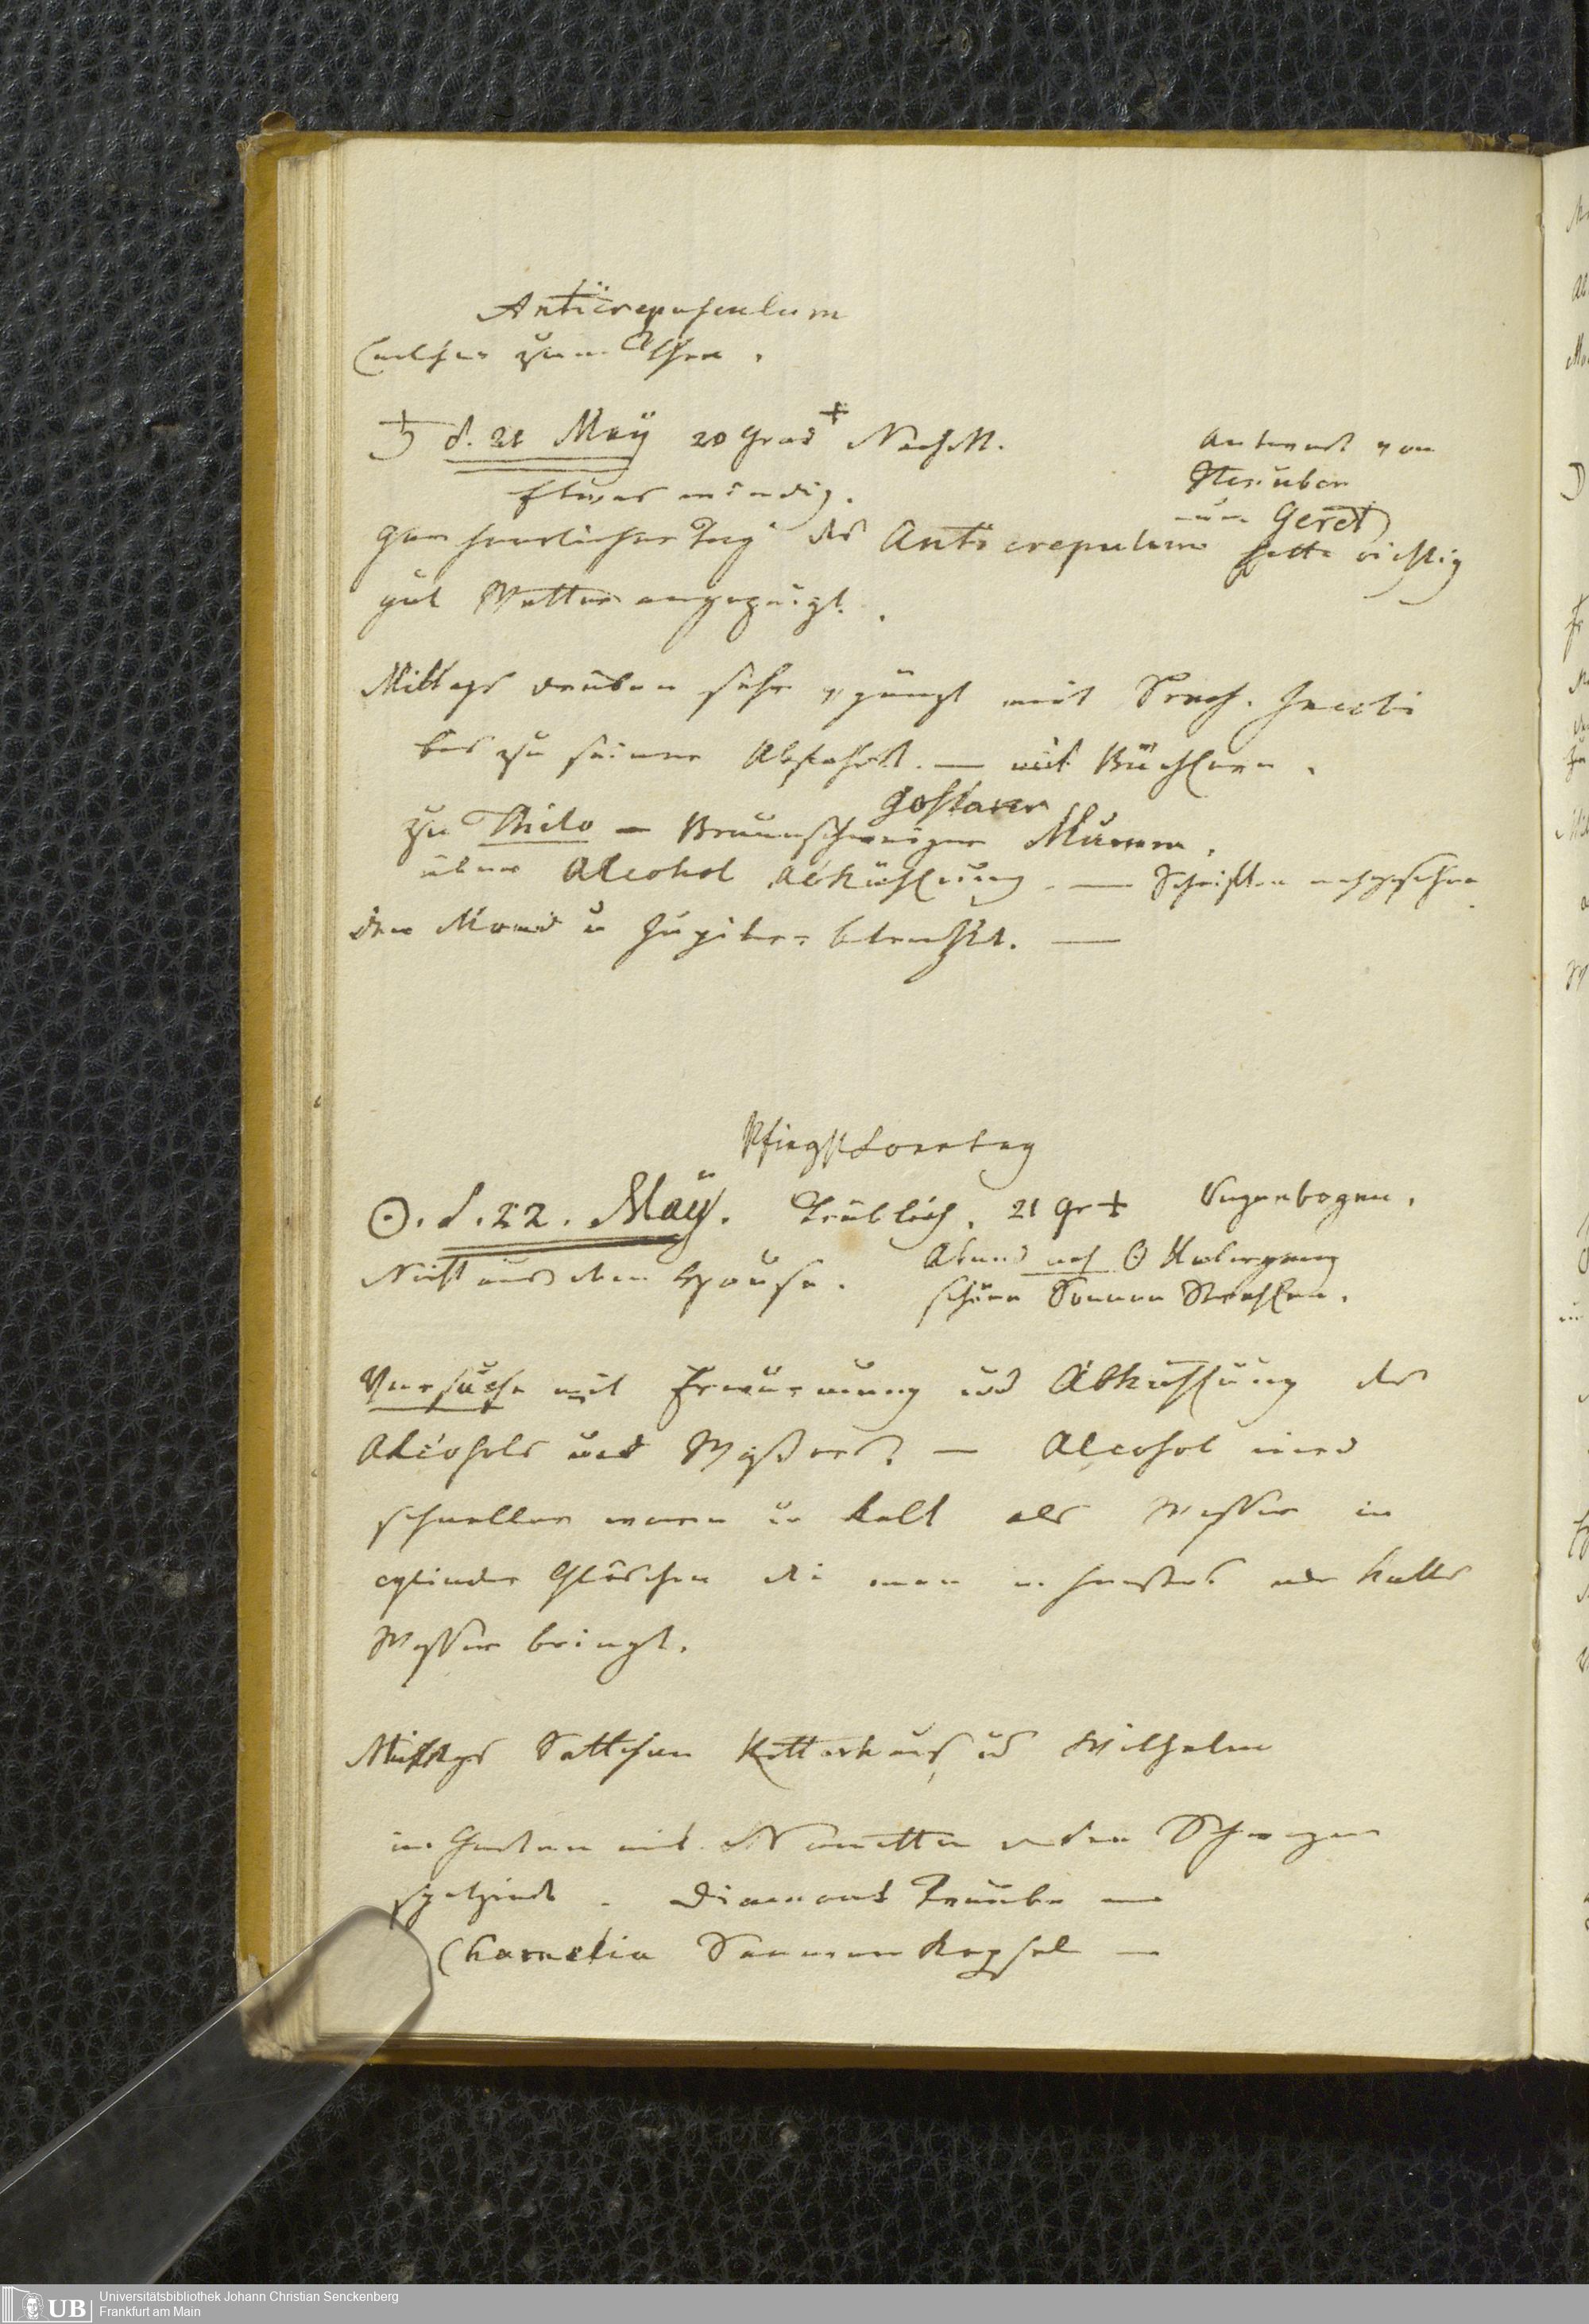 Anticrepusculum
zum Thee.
♄ d. 21 May 20 Grad + Nachmitt.
Etwas windig.
Antwort von
Steuber
nun Geret
Gar herrlicher Tag das Anticrepulum hatte richtig
gut Wetter angezeigt.
Mittags drüben sehr mit Jacobi
bis zu seiner Abfahrt. — mit Büchern.
Goslarer
zu Thilo — Braunschweiger Mumm.
über Alcohol Abkühlung. — Schriften nachgesehen
den Mond u Jupiter betrachtet. —
Pfingstsonntag
☉. d. 22. May. Trüblich. 21 Gr + Regenbogen.
Nicht aus dem Hause. Abend nach ☉ Untergang
schöne Sonnen Strahlen.
Versuche mit Erwärmung und Abkühlung des
Alcohols und Waßers. — Alcohol wird
schneller warm u kalt als Wasser in
cylinder Gläschen die man in heißes oder kaltes
Wasser bringt.
Mittags Settchen Ketterhaus und Wilhelm
im Garten mit Nanette
spatzirt. Diamant Traube —
Kamelia Saamen Kapsel —
Universitätsbibliothek Johann Christian Senckenberg
Frankfurt am Main
UB